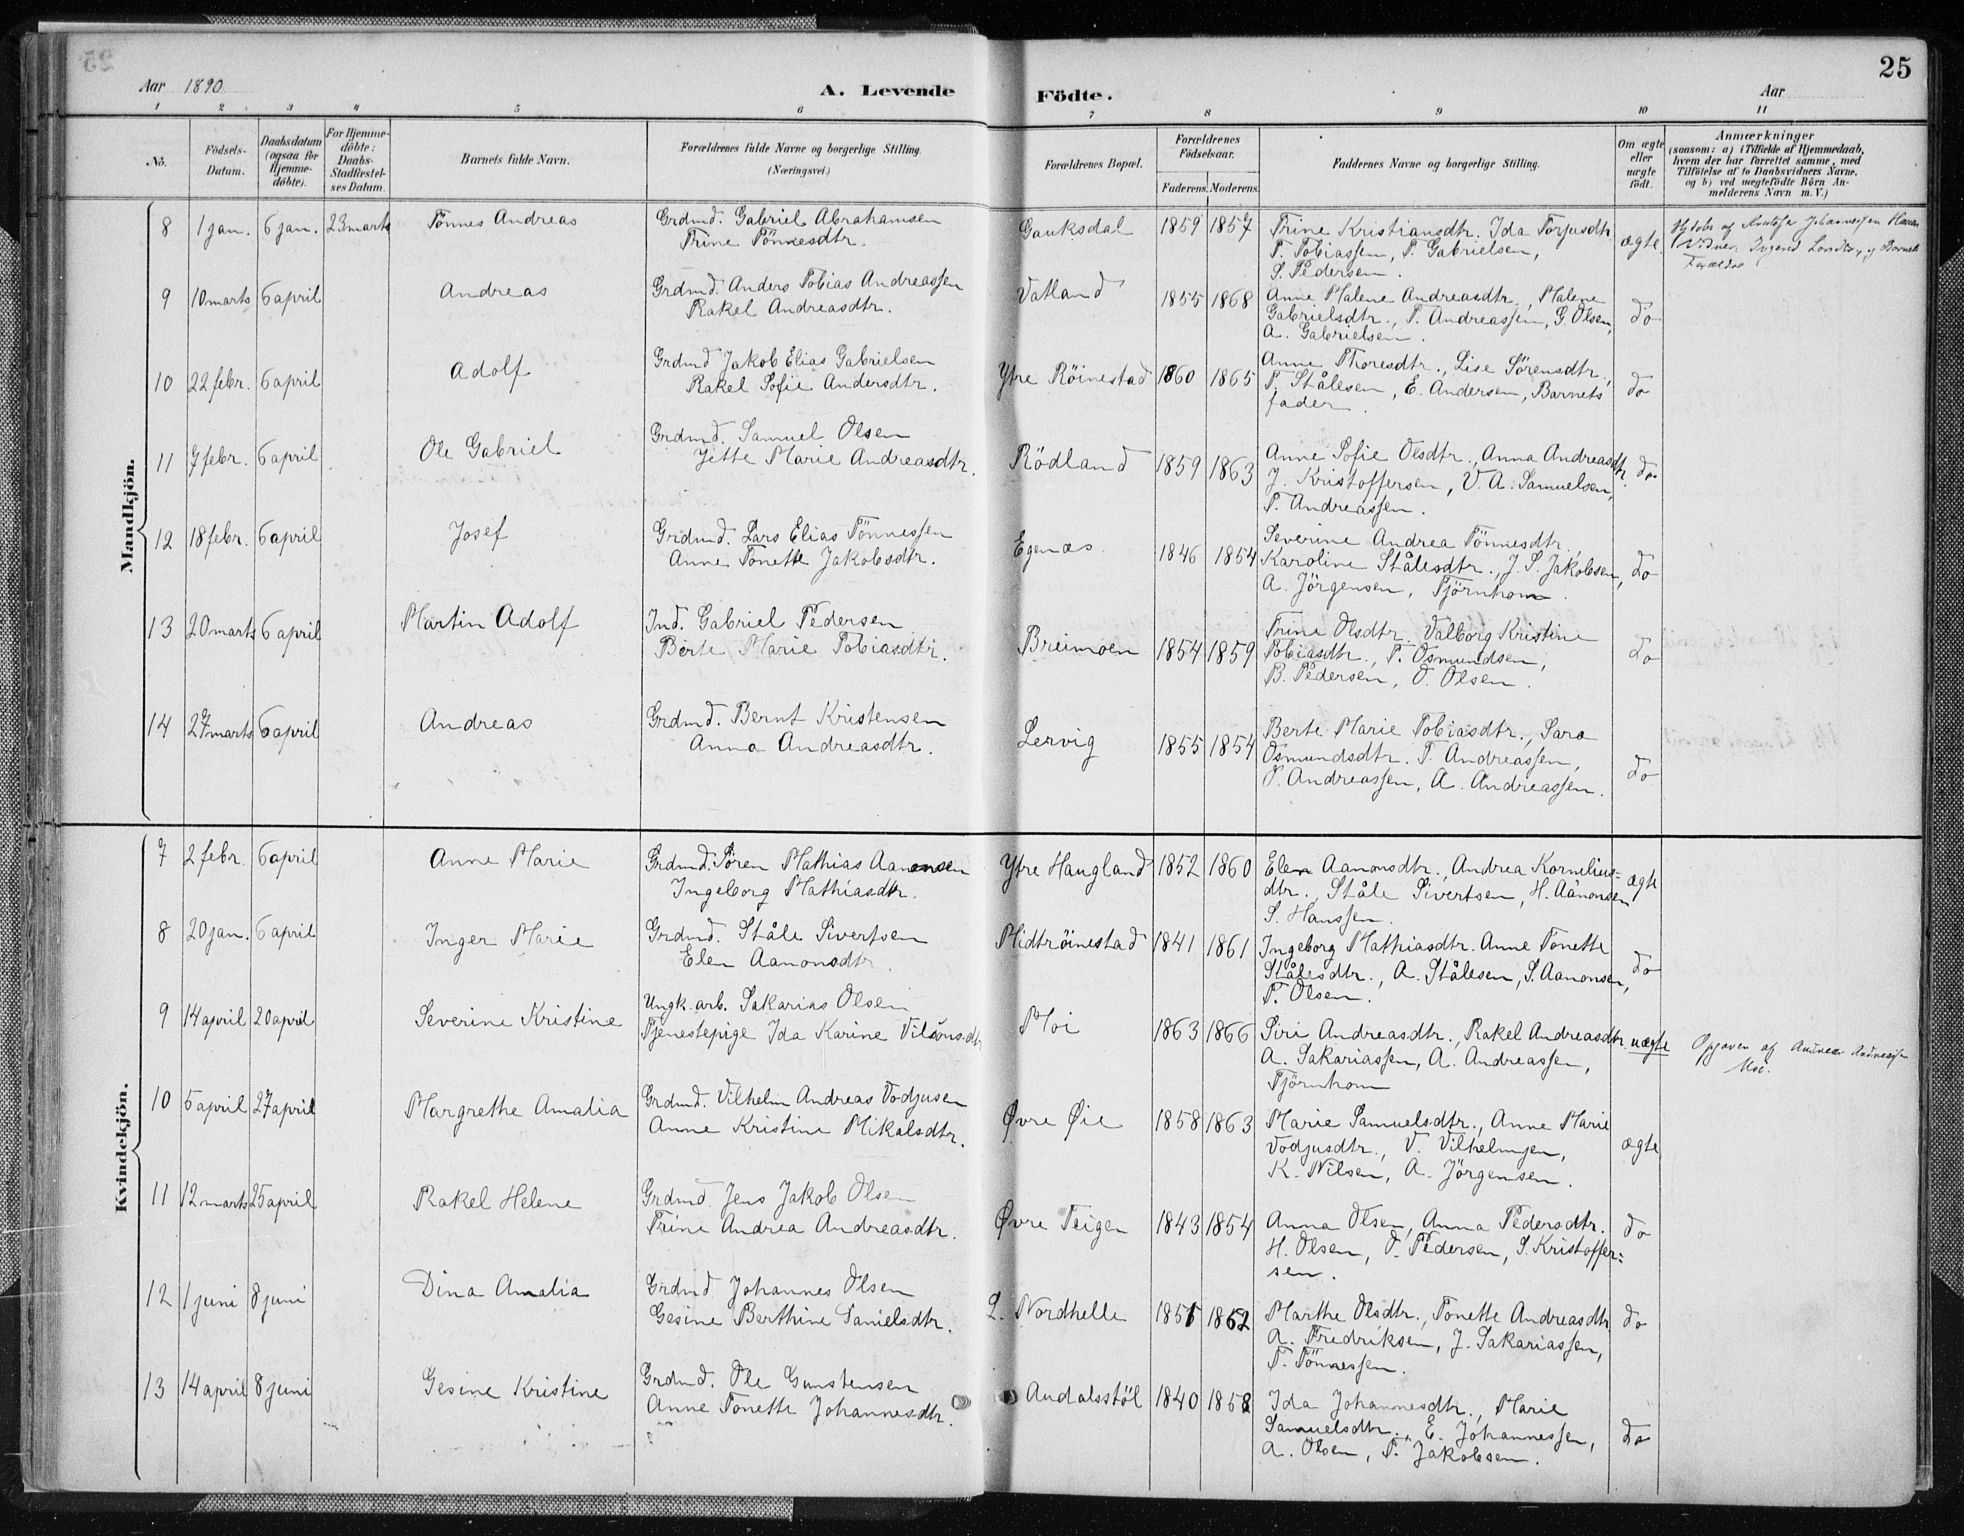 25
Aar 1890
A. Levende Födte.
Aar
1 2 3 4 5 6 7 8 9 10 11
No.
Födsels-Datum.
Daabsdatum (ogsaa for Hjemme-döbte).
For Hjemme-döbte: Daabs-Stadfæstel-ses Datum.
Barnets fulde Navn.
Forældrenes fulde Navne og borgerlige Stilling. (Næringsvei.)
Forældrenes Bopæl.
Forældrenes Födselsaar.
Faderens. Moderens.
Faddernes Navne og borgerlige Stilling.
Om ægte eller uægte födt.
Anmærkninger
(saasom: a) i Tilfælde af Hjemmedaab,
hvem der har forrettet samme, med
Tilföielse af to Daabsvidners Navne,
og b) ved uægtefödte Börn An-
melderens Navn m. V.)
Mandkjön.
8 1 jan. 6 jan. 23 marts Tönnes Andreas Grdmd. Gabriel Abrahamsen Gauksdal 1859 1857 Trine Kristiansdtr. Ida Torjusdtr ægte
Trine Tönnesdtr. T. Tobiassen, T. Gabrielsen,
S. Pedersen.
9 10 marts 6 april Andreas Grdmd. Anders Tobias Andreassen Vatland 1855 1868 Anne Malene Andreasdtr., Malene do
Rakel Andreasdtr. Gabrielsdtr., T. Andreassen, G. Olsen,
A. Gabrielsen.
10 22 febr. 6 april Adolf Grdmd Jakob Elias Gabrielsen Ytre Röinestad 1860 1865 Anne Thoresdtr., Lise Sörensdtr., do
Rakel Sofie Andersdtr. P. Stålesen, E. Andersen, Barnets
fader.
11 7 febr. 6 april Ole Gabriel Grdmd. Samuel Olsen Rödland 1859 1863 Anne Sofie Olsdtr., Anna Andreasdtr. do
Jette Marie Andreasdtr. J. Kristoffersen, V. A. Samuelsen,
T. Andreassen.
12 18 febr. 6 april Josef Grdmd. Lars Elias Tönnessen Egenæs 1846 1854 Severine Andrea Tönnesdtr., do
Anne Tonette Jakobsdtr. Karoline Stålesdtr., J. S. Jakobsen,
A. Jörgensen, Tjörnhom.
13 20 marts 6 april Martin Adolf Ind. Gabriel Pedersen Breimoen 1854 1859 Trine Olsdtr. Valborg Kristine do
Berte Marie Tobiasdtr. Tobiasdtr., T. Osmundsen,
B. Pedersen, O. Olsen.
14 27 marts 6 april Andreas Grdmd. Bernt Kristensen Lervig 1855 1854 Berte Marie Tobiasdtr., Sara do
Anna Andreasdtr. Osmundsdtr. T. Andreassen,
P. Andreassen, A. Andreassen.
Kvindekjön.
7 2 febr. 6 april Anne Marie Grdmd. Sören Mathias Aanonsen Ytre Haugland 1852 1860 Elen Aanonsdtr., Andrea Kornelius= ægte
Ingeborg Mathiasdtr. dtr., Ståle Sivertsen, H. Aanonsen
S. Hanssen.
8 20 jan. 6 april Inger Marie Grdmd. Ståle Sivertsen Midtröinestad 1841 1861 Ingeborg Mathiasdtr. Anne Tonette do
Elen Aanonsdtr. Stålesdtr., A. Stålesen, S. Aanonsen,
T. Olsen.
9 14 april 20 april Severine Kristine Ungk. arb. Sakarias Olsen Moi 1863 1866 Siri Andreasdtr., Rakel Andreasdtr. uægte Opgaven af Andreas Andreassen
Tjenestepige Ida Karine Vilsonsdtr A. Sakariassen, A. Andreassen, Moi.
Tjörnhom
10 5 april 27 april Margrethe Amalia Grdmd. Vilhelm Andreas Vodjusen Øvre Øie 1858 1863 Marie Samuelsdtr., Anne Marie ægte
Anne Kristine Mikalsdtr. Vodjusdtr., V. Vilhelmsen,
K. Nilsen, A. Jörgensen.
11 12 marts 25 april Rakel Helene Grdmd Jens Jakob Olsen Øvre Teigen 1843 1854 Anna Olsen, Anna Pedersdtr. do
Trine Andrea Andreasdtr. H. Olsen, O. Pedersen, S. Kristoffer=
sen.
12 1 juni 8 juni Dina Amalia Grdmd Johannes Olsen L. Nordhelle 1851 1852 Marthe Olsdtr., Tonette Andreasdtr do
Gesine Berthine Danielsdtr. A. Fredriksen, J. Sakariassen,
T. Tönnessen.
13 14 april 8 juni Gesine Kristine Grdmd. Ole Gunstensen Audalsstöl 1840 1858 Ida Johannesdtr., Marie do
Anne Tonette Johannesdtr. Samuelsdtr., E. Johannessen,
A. Olsen, T. Jakobsen.